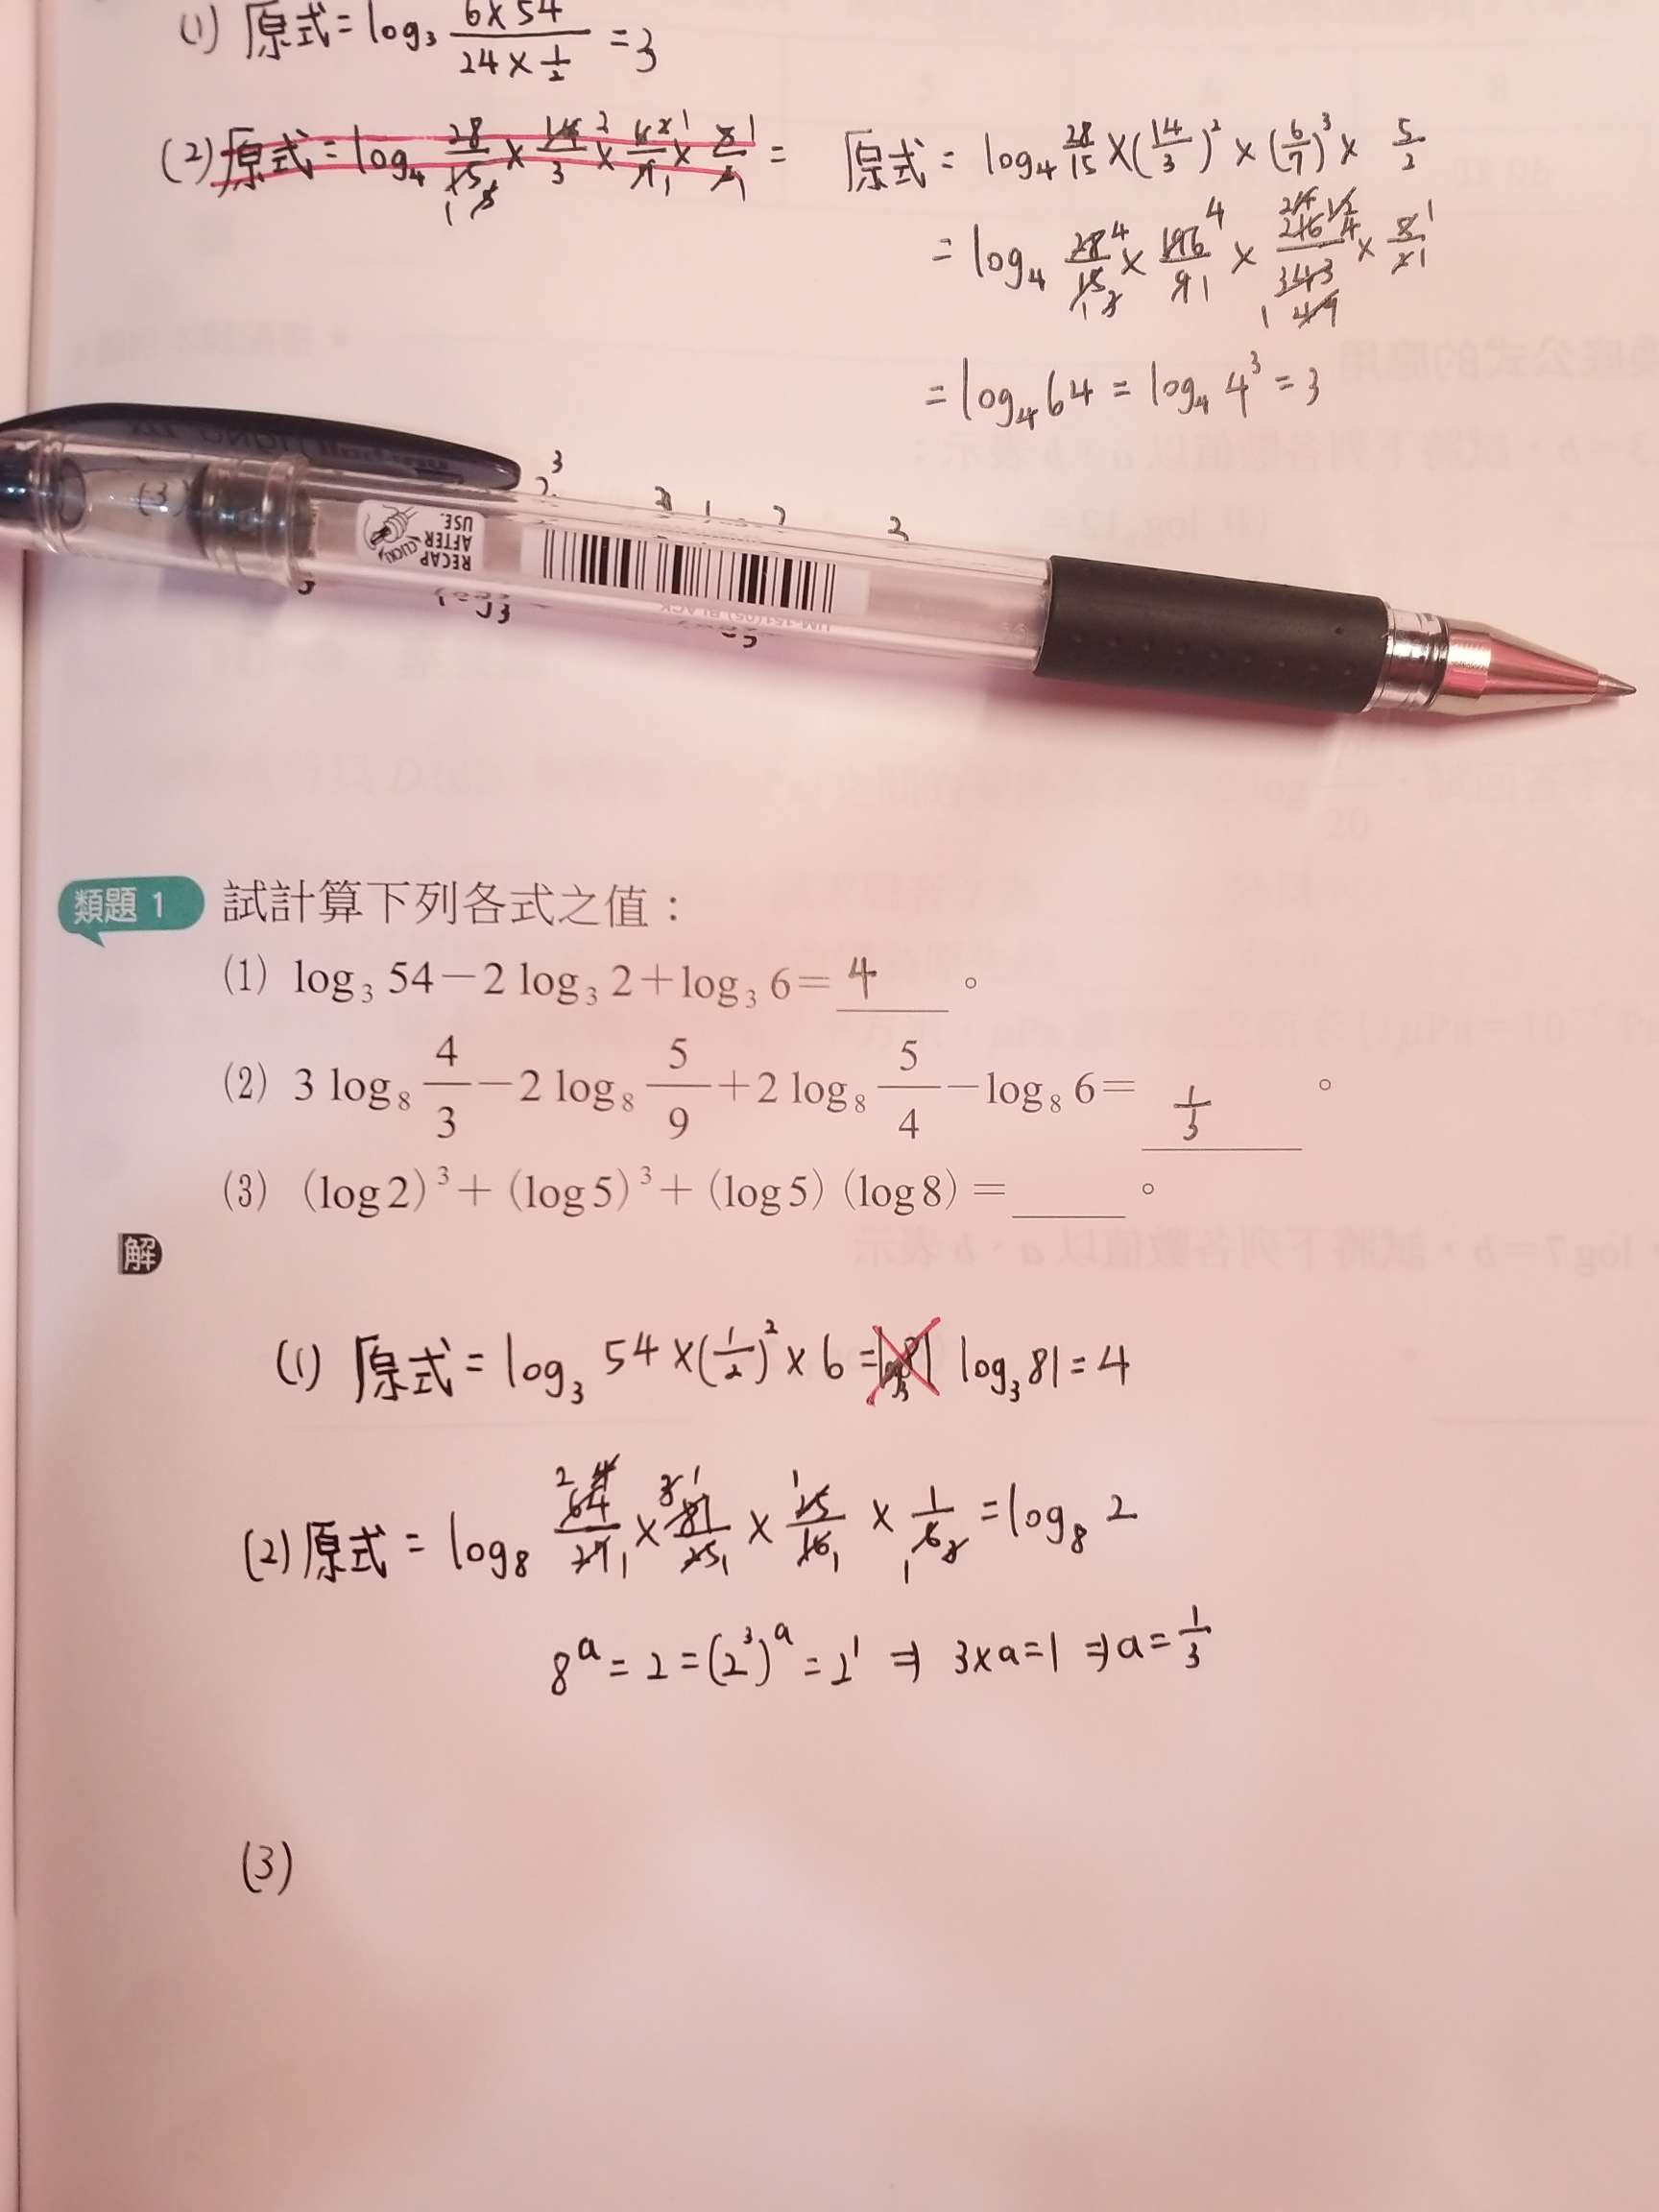 (1) 原式 = log₃ (6×54)/(24×1/2) = 3
(2) 原式 = log₄ 28/15 × 14/3 × 6/7 × 5/2 = 原式 = log₄ 28/15 × (14/3)² × (6/7)³ × 5/2
= log₄ 28/15 × 196/9 × 216/343 × 5/2
= log₄ 64 = log₄ 4³ = 3
(3)
RECAP
AFTER
USE.
類題 1 試計算下列各式之值：
(1) log₃ 54－2 log₃ 2＋log₃ 6＝ 4 。
(2) 3 log₈ 4/3 －2 log₈ 5/9 ＋2 log₈ 5/4 －log₈ 6＝ 1/3 。
(3) (log2)³＋(log5)³＋(log5)(log8)＝ 。
解
(1) 原式 = log₃ 54 × (1/2)² × 6 = log₃ 81 = 4
(2) 原式 = log₈ 64/27 × 81/25 × 25/16 × 1/6 = log₈ 2
8ᵃ = 2 = (2³)ᵃ = 2¹ ⇒ 3×a=1 ⇒ a = 1/3
(3)